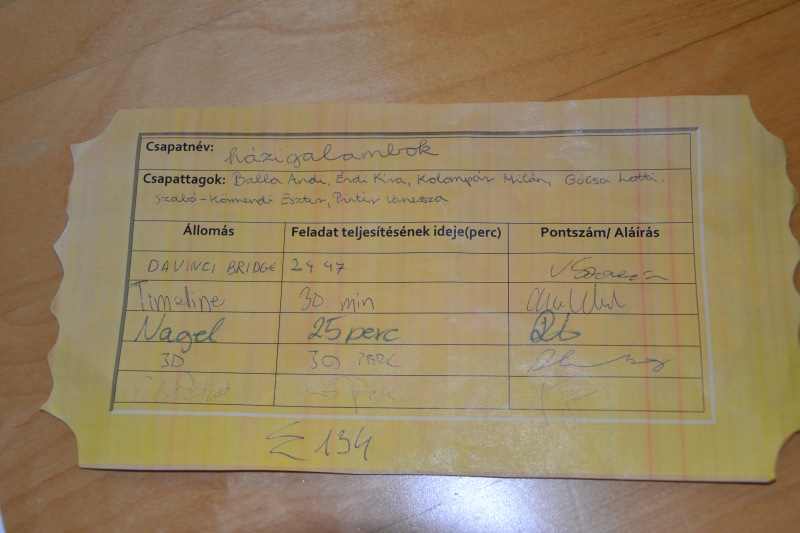 Csapatnév: házigalambok
Csapattagok: Balla Andi, Érdi Kira, Kolompár Milán, Gócsa Lotti.
Szabó-Körmendi Eszter, Pintér Vanessza
Állomás Feladat teljesítésének ideje(perc) Pontszám/ Aláírás
DAVINCI BRIDGE 24 47
Timeline 30 min
Nagel 25 perc
3D 30 PERC
Σ 134